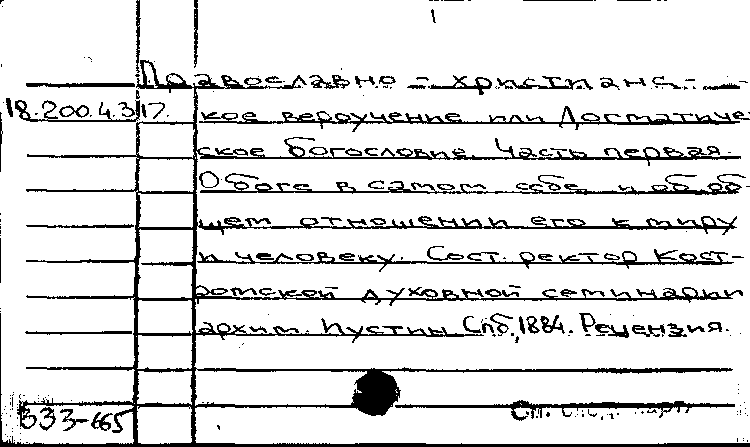 Православно-христианс-
18.200.4.317. кое вероучение или Догматиче-
ское богословие. Часть первая.
О боге в самом себе и об об-
щем отношении его к миру
и человеку. Сост. ректор Кост-
ромской духовной семинарии
архим. Иустин Спб., 1884. Рецензия.
См. след. карт.
333-665